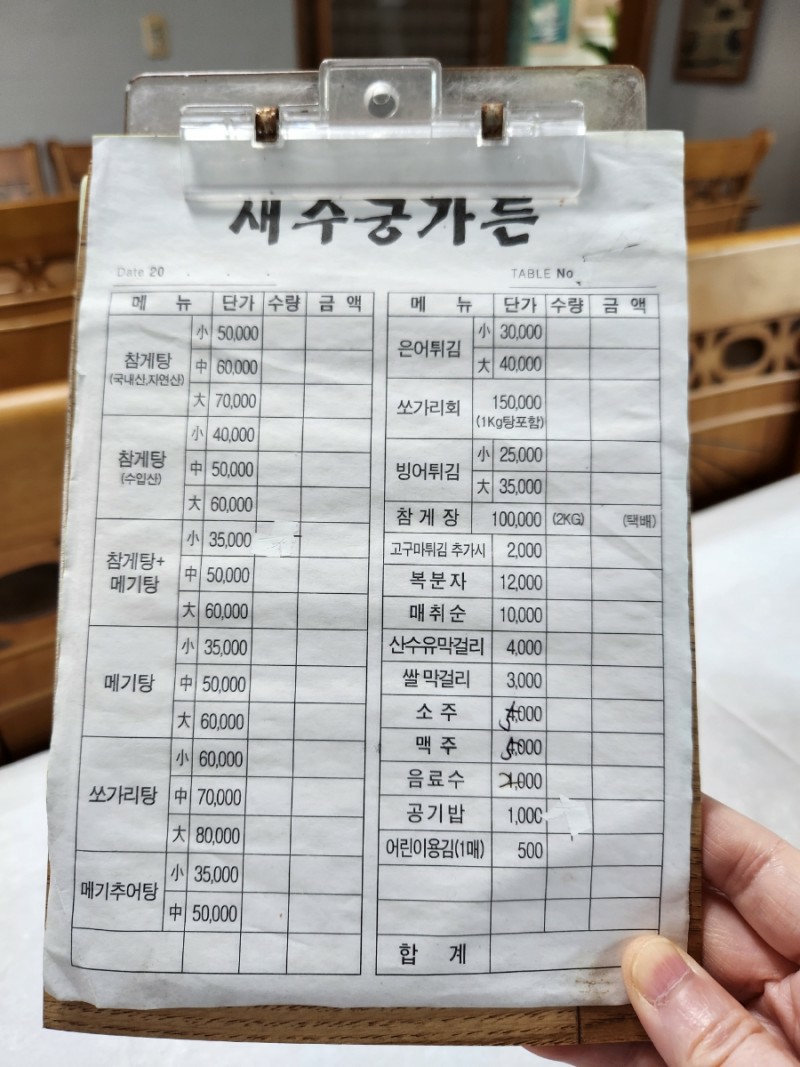 새수궁가든
Date 20 . . .
TABLE No.
메 뉴 단가 수량 금 액
참게탕 小 50,000
(국내산,자연산) 中 60,000
大 70,000
참게탕 小 40,000
(수입산) 中 50,000
大 60,000
참게탕+ 小 35,000
메기탕 中 50,000
大 60,000
메기탕 小 35,000
中 50,000
大 60,000
쏘가리탕 小 60,000
中 70,000
大 80,000
메기추어탕 小 35,000
中 50,000
메 뉴 단가 수량 금 액
은어튀김 小 30,000
大 40,000
쏘가리회 150,000
(1Kg탕포함)
빙어튀김 小 25,000
大 35,000
참 게 장 100,000 (2KG) (택배)
고구마튀김 추가시 2,000
복 분 자 12,000
매 취 순 10,000
산수유막걸리 4,000
쌀 막걸리 3,000
소 주 5,000
맥 주 5,000
음 료 수 000
공 기 밥 1,000
어린이용김(1매) 500
합 계